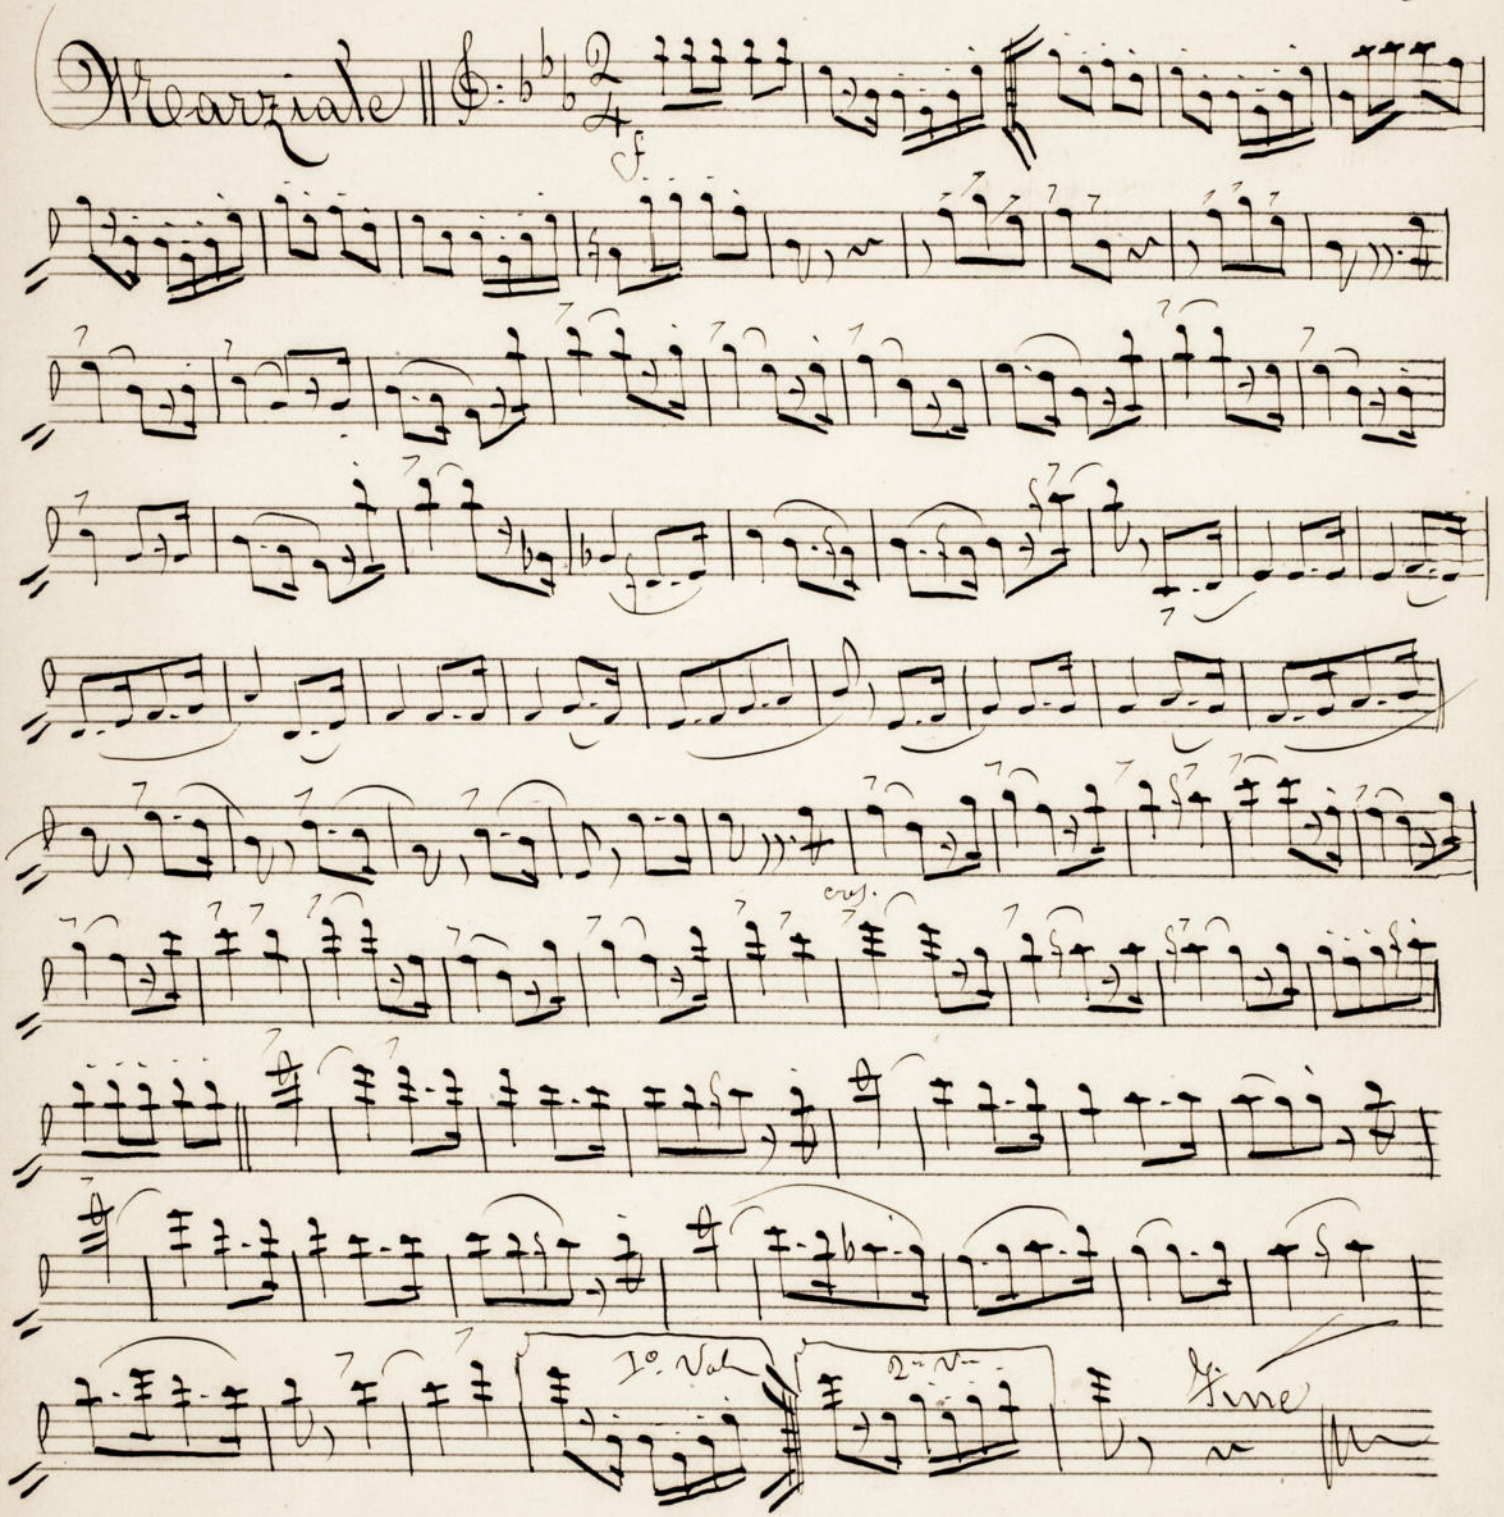 Marziale 2 4
f
cres.
1º. Vol
2ª V
Fine